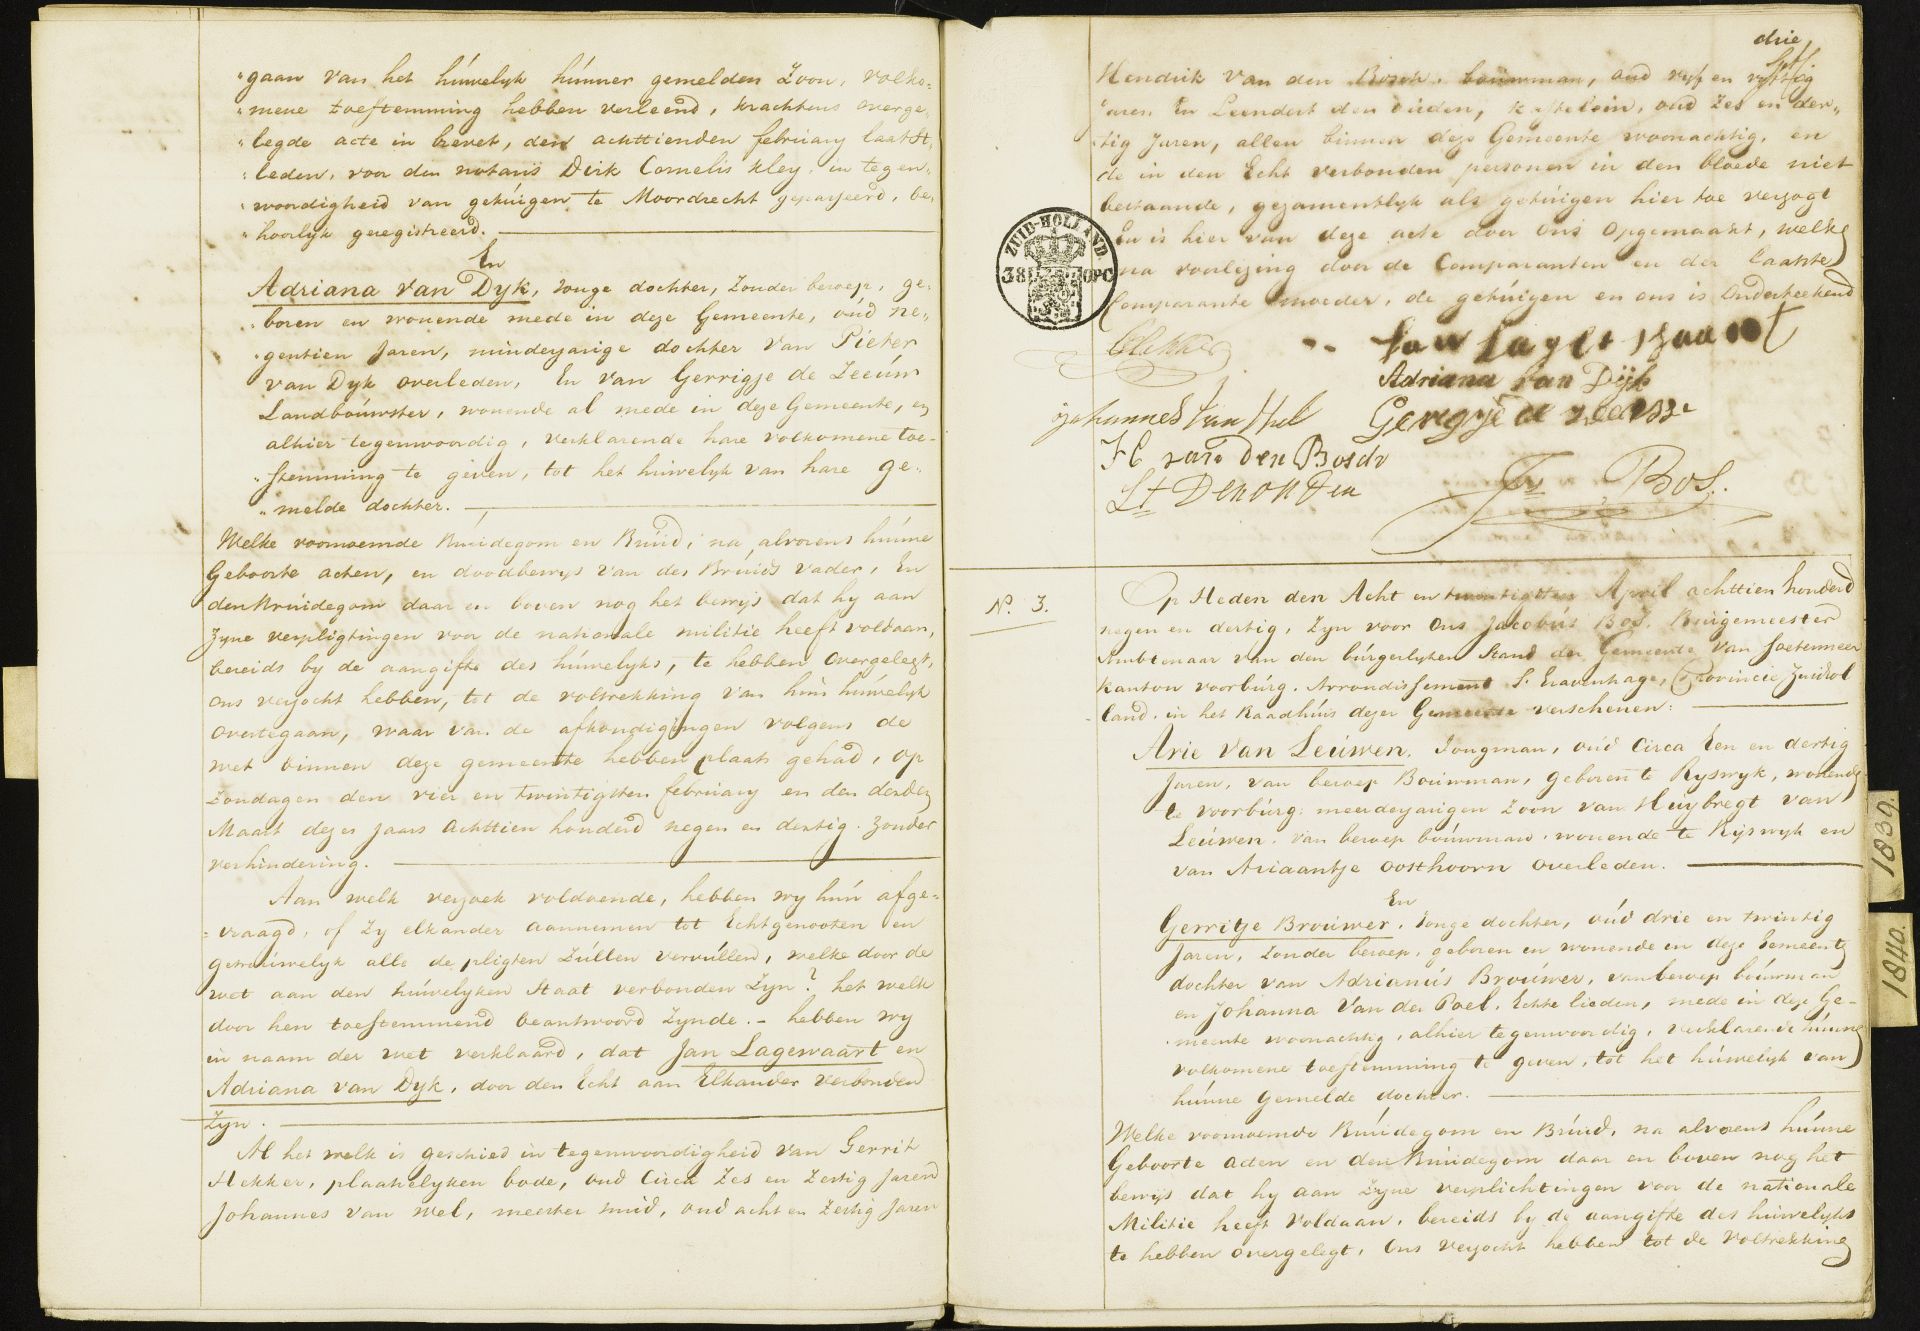 "gaan van het húwelyk húnner gemelden Zoon, volko=
"mene toestemming hebben verleend, krachtens overge=
"legde acte in brevet, den achttienden february laatst
"leden, voor den notaris Dirk Cornelis Kley, in tegen=
"woordigheid van getúigen te Moordrecht gepasseerd, be=
"hoorlyk geregistreerd.
En
Adriana van Dyk, Jonge dochter, Zonder beroep, ge=
"boren en wonende mede in deze Gemeente, oúd ne=
"gentien Jaren, minderjarige dochter van Pieter
van Dyk overleden, En van Gerrigje de Zeeúw
Landboúwster, wonende al mede in deze Gemeente, en
alhier tegenwoordig, verklarende hare volkomene toe=
"stemming te geven, tot het húwelyk van hare ge=
"melde dochter.
Welke voornoemde Brúidegom en Brúid, na alvorens húnne
Geboorte acten, en doodbewys van des Brúids vader, En
den Brúidegom daar en boven nog het bewys dat hy aan
Zyne verpligtingen voor de nationale militie heeft voldaan,
bereids by de aangifte des húwelyks, te hebben overgelegt,
ons verzocht hebben, tot de voltrekking van hún húwelyk
overtegaan, waar van de afkondigingen volgens de
wet binnen deze gemeente hebben plaats gehad, op
Zondagen den vier en twintigsten february en den derden
Maart dezes Jaars achttien honderd negen en dertig. Zonder
verhindering.
Aan welk verzoek voldoende, hebben wy hún afge=
=vraagd, of Zy elkander aannemen tot Echtgenooten en
getroúwelyk alle de pligten Zúllen vervúllen, welke door de
wet aan den húwelyken Staat verbonden Zyn? het welk
door hen toestemmend beantwoord Zynde. - hebben wy
in naam der wet verklaard, dat Jan Lagewaart en
Adriana van Dyk, door den Echt aan Elkander verbonden
Zyn.
Al het welk is geschied in tegenwoordigheid van Gerrit
Hekker, plaatselyken bode, oud Circa Zes en Zestig Jaren
Johannes van Wel, meester smid, oud acht en Zestig Jaren
drie
Hendrik van den Bosch, bouwman, oud vyf en vyftig
Jaren En Leendert den Ouden, Kastelein, oud Zes en der=
tig Jaren, allen binnen deze Gemeente woonachtig, en
de in den Echt verbonden personen in den bloede niet
bestaande, gezamentlyk als getúigen hier toe verzogt
En is hier van deze acte door ons opgemaakt, welke
na voorlezing door de Comparanten en der laatste
Comparante moeder, de getúigen en ons is Onderteekend
ZUID-HOLLAND.
38 OPC
GHekker
Jan Lagewaart
Adriana van Dijk
Johannes van Wel
Gerregje de Zeeuw
H van Den Bosch
Ln Den Ouden
Js Bos.
No. 3.
Op Heden den Acht en twintigsten April achttien honderd
negen en dertig, Zyn voor Ons Jacobús Bos. Búrgemeester
Ambtenaar van den búrgerlyken Stand der Gemeente van Soetermeer
Kanton voorbúrg. Arrondissement S. Gravenhage, Provincie Zuidhol
land. in het Raadhúis dezer Gemeente verschenen:
Arie van Leúwen, Jongman, oúd Circa Een en dertig
Jaren, van beroep Boúwman, geboren te Ryswyk, wonende
te voorbúrg. meerderjarigen Zoon van Huybregt van
Leúwen. van beroep boúwman. wonende te Rijswyk en
van Ariaantje Oosthoorn overleden.
En
Gerritje Broúwer, Jonge dochter, oúd drie en twintig
Jaren, Zonder beroep, geboren en wonende in deze Gemeente
dochter van Adrianús Brouwer, van beroep boúwman
en Johanna van der Poel. Echte lieden, mede in deze Ge=
meente woonachtig, alhier tegenwoordig, verklarende húnne
volkomene toestemming te geven, tot het húwelyk van
húnne gemelde dochter.
Welke voornoemde Brúidegom en Brúid, na alvorens húnne
Geboorte acten en den Brúidegom daar en boven nog het
bewijs dat hy aan Zyne verplichtingen voor de nationale
Militie heeft voldaan, bereids by de aangifte des húwelyks
te hebben overgelegt, Ons verzocht hebben tot de voltrekking
1839.
1840.